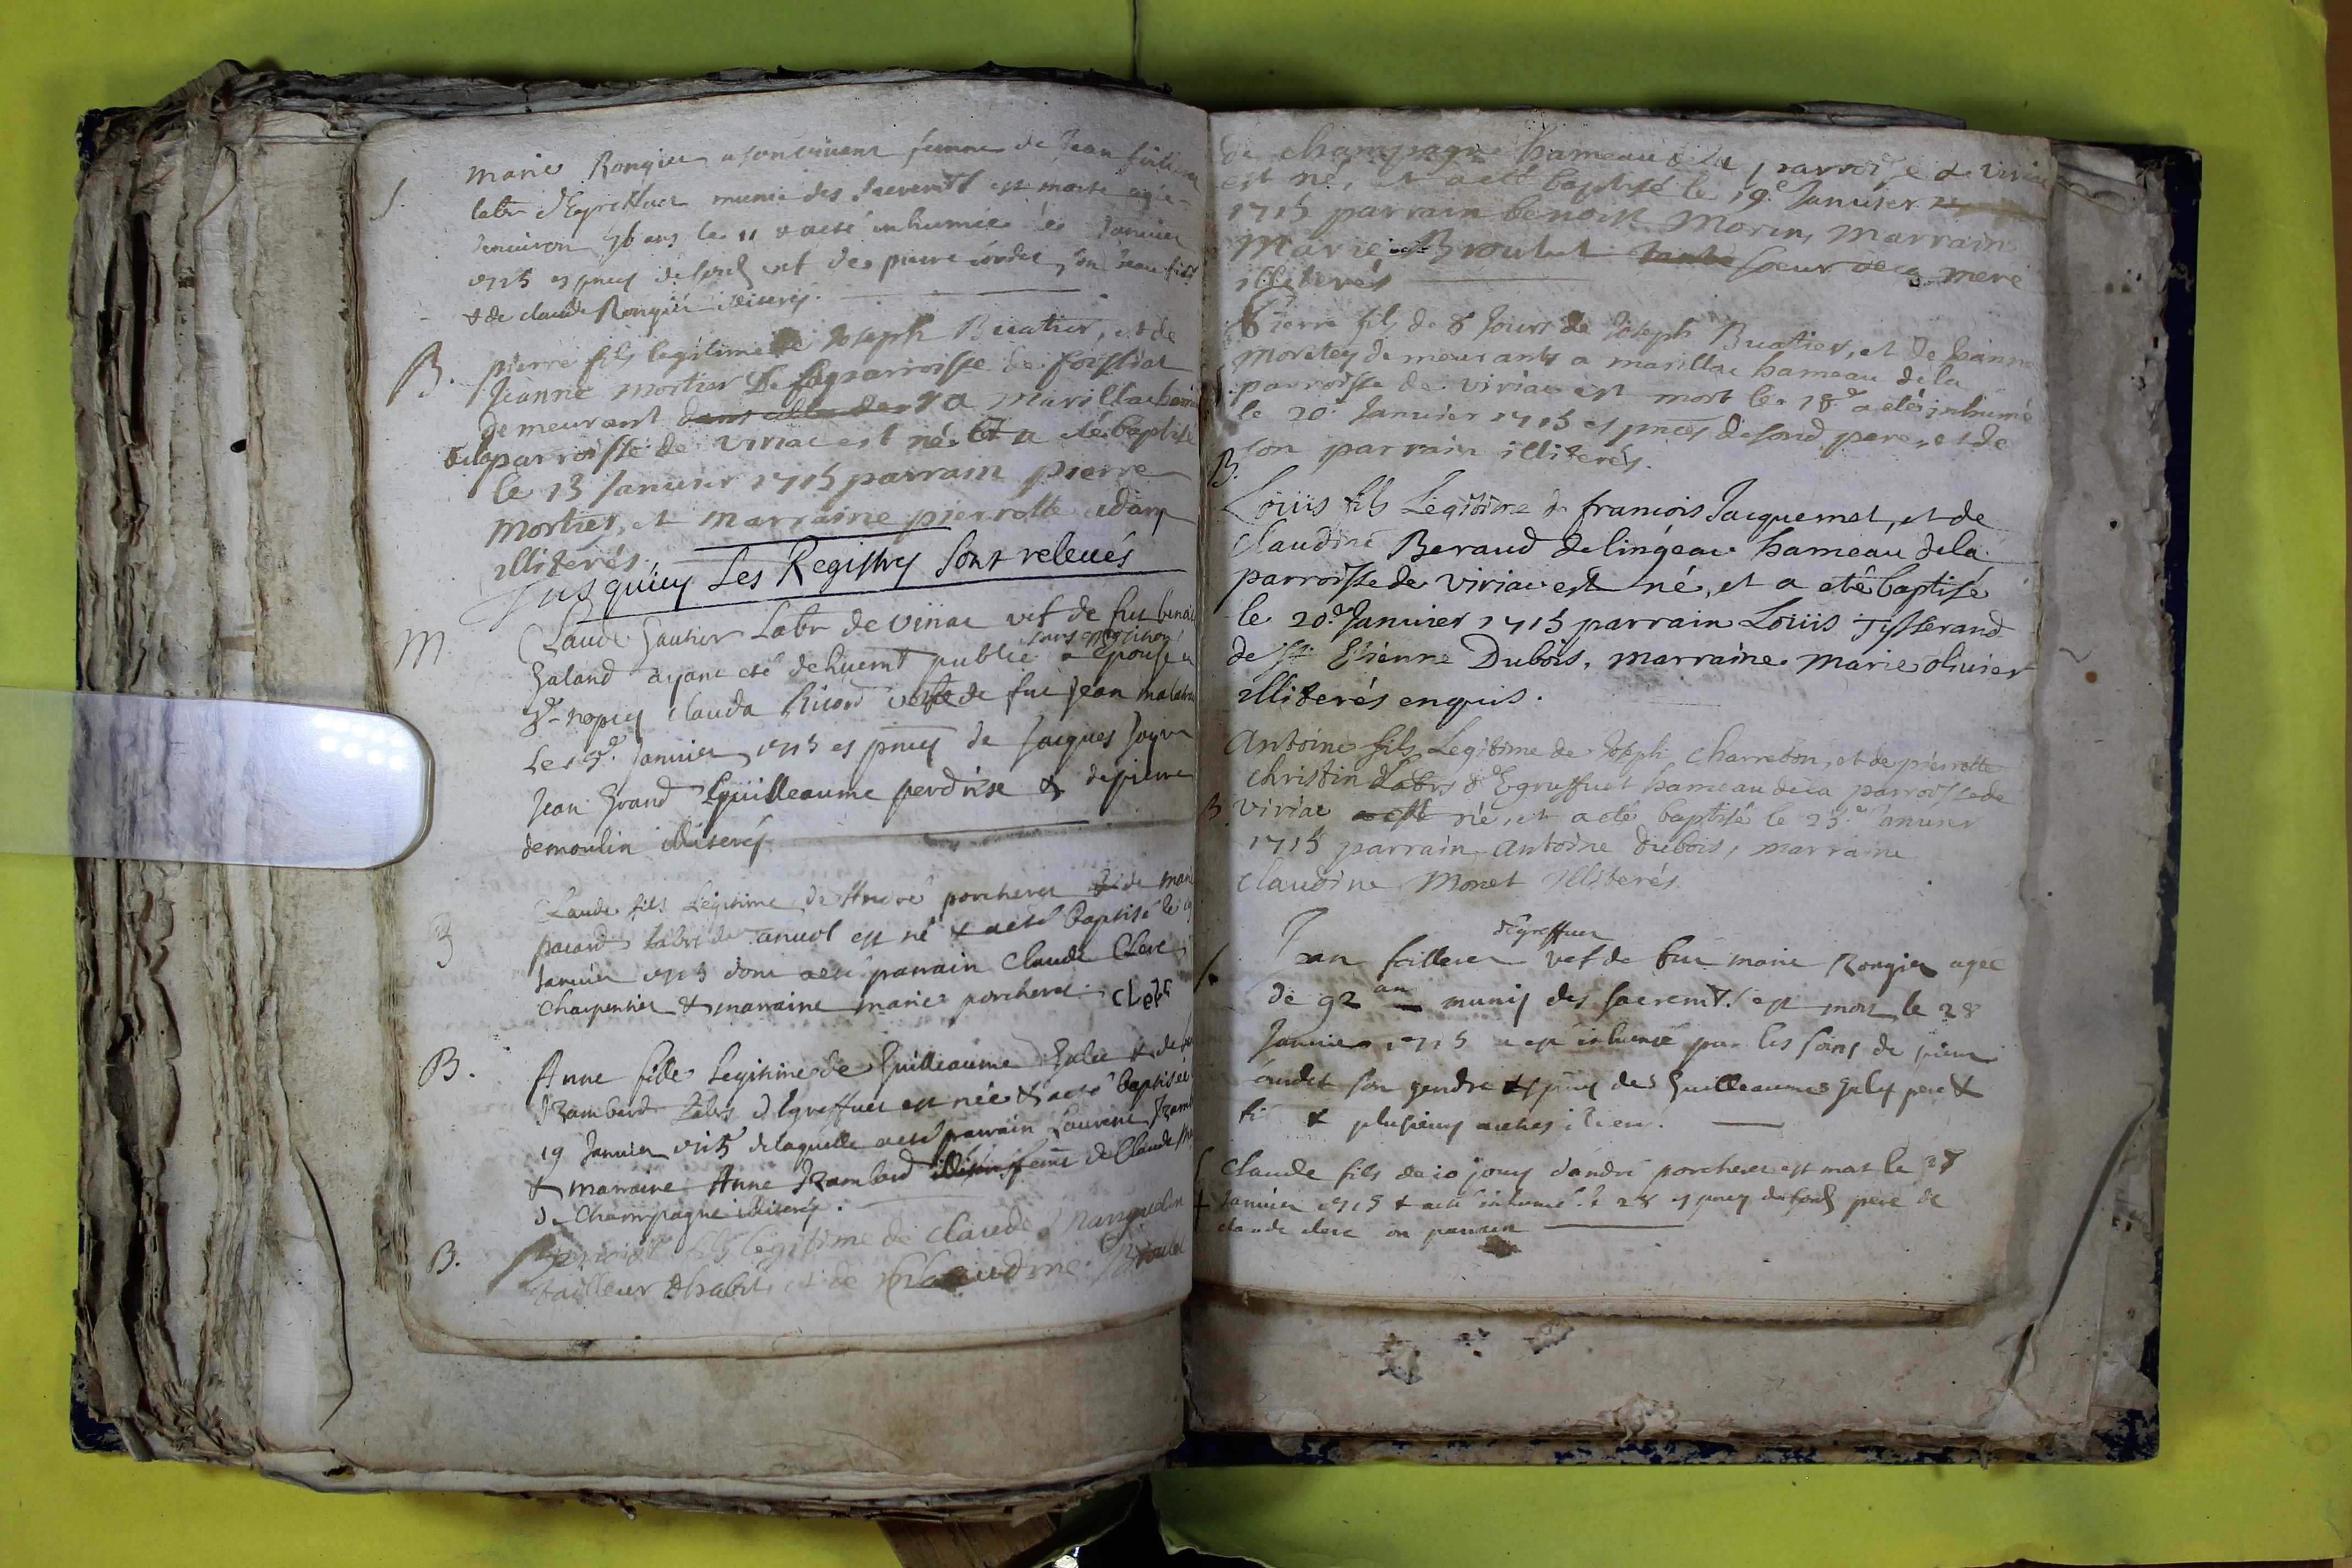 S.
Marie Rongier a son vivant femme de Jean
labr d'Egreffuet munie des sacremts est morte agée
denviron 76 ans le 11 & a eté inhumée Janvier
1715 es pnces de pierre son beau fils
& de claude Rongier illiterés.
B.
pierre fils legitime de Joseph Buatier, et de
Jeanne mortier De la parroisse de foissiat
demeurant a Marillac
de la parroisse de viriac est né. Et a eté baptisé
le 13 Janvier 1715 parrain pierre
Mortier, et marraine pierrotte
illiterés.
Jusquicy Les Registres sont relevés
M
Claude Gautier Labr de viriac vef de fut benoit
Galand ayant eté dehuemt publié sans opposition a epousé
nopces Clauda Ricord vefve de fut Jean
Le Janvier 1715 es pnces de Jacques
Jean Grand Guilleaume perdrise & de pierre
demoulin illiterés
B
Claude fils Legitime de André porcheret & de Marie
pacard labrs de est né & a eté baptisé le
Janvier 1715 dont a eté parrain Claude Clerc
Charpentier & marraine marie porcheret. CLerc
B.
Anne fille Legitime de Guilleaume & de
Izambard Labrs d'Egreffuet est née & a eté baptisée
19 Janvier 1715 de laquelle a eté parrain Laurent
& marraine Anne Izambard feme de Claude
de Champagne illiterés.
B.
fils legitime de Claude
tailleur d'habit, et de Claudine Broulet
de Champagne hameau de la parroisse de viriac
est né, et a eté baptisé le 19e Janvier
1715 parrain benoist Morin, Marraine
Marie Broulet soeur de la mere
illiterés
Pierre fils de 8 Jours de Joseph Buatier, et de Jeanne
Mortey demeurants a marillac hameau de la
parroisse de viriac est mort le 18e a eté inhumé
le 20e Janvier 1715 es pnces desond. pere, et de
son parrain illiterés.
B.
Loüis fils Legitime de francois Jacquemet, et de
Claudine Beraud de lingeac hameau de la
parroisse de viriac est né, et a eté baptisé
le 20e Janvier 1715 parrain Loüis Tisserand
de St Etienne Dubois, marraine Marie olivier
illiterés enquis.
Antoine fils Legitime de Joseph Charreton, et de pierrotte
Christin Labrs d'Egreffuet hameau de la parroisse de
B. viriac est né, et a eté baptisé le 23e Janvier
1715 parrain Antoine Dubois, marraine
Claudine Monet Illiterés.
d'Egreffuet
S. Jean vef de fut marie Rongier agée
de 92 an munis des sacremts. est mort le 28
Janvier 1715 a eté inhumé par les soins de pierre
son gendre es pnces des Guilleaumes pere &
fi & plusieurs autres
Claude fils de 10 jours d'andré porcheret est mort le 27
Janvier 1715 & a eté inhumé le 28 es pnces dusond. pere de
claude clerc son parrain